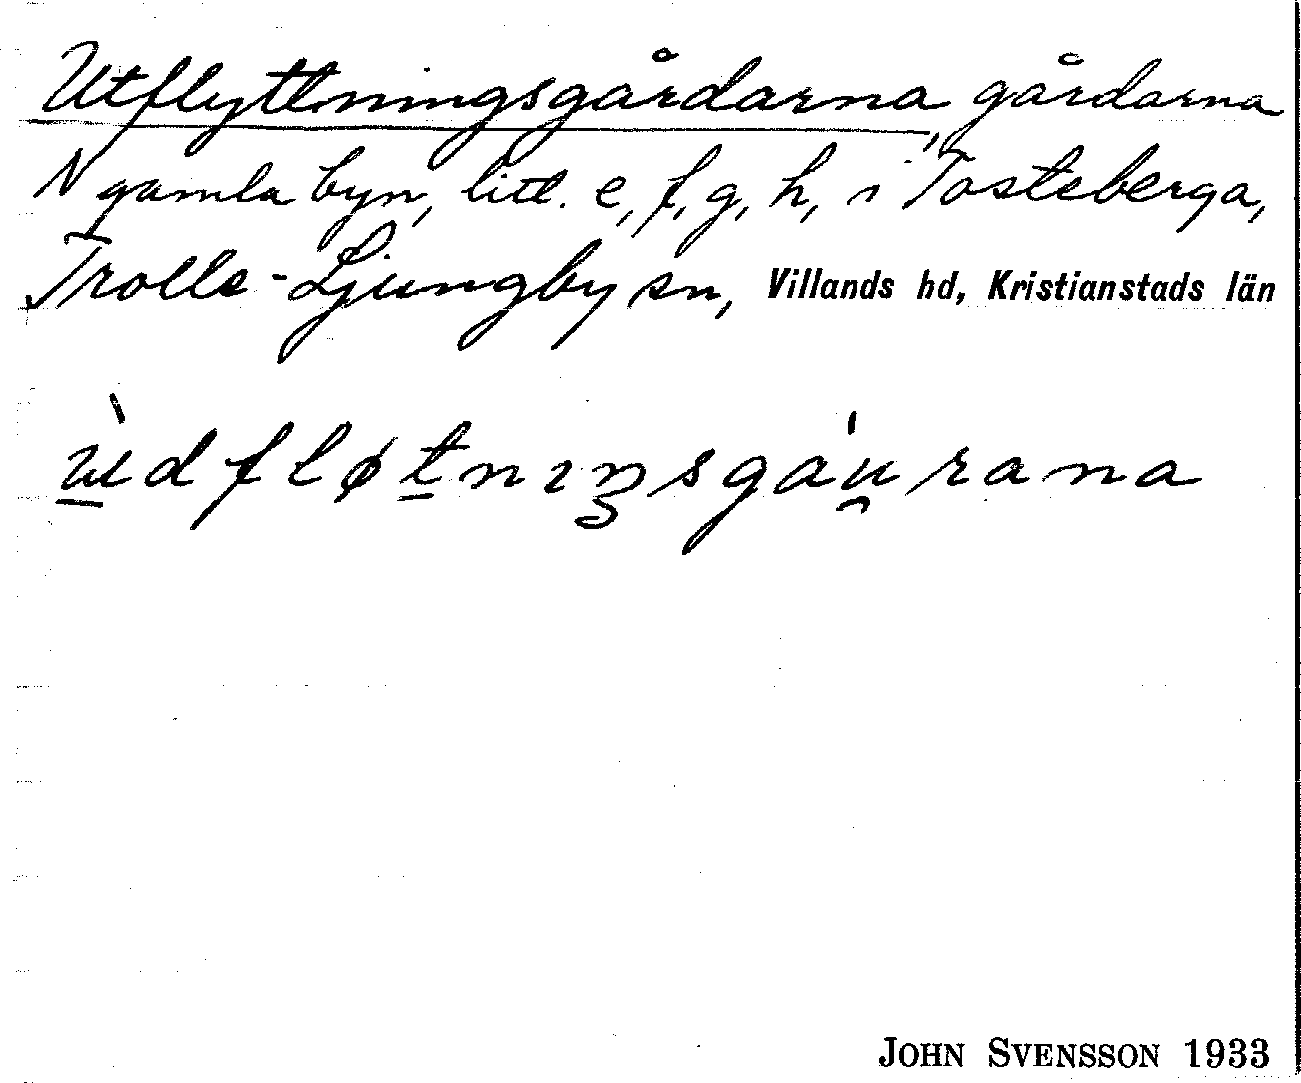 Utflyttningsgårdarna, gårdarna
N gamla byn, litt. e, f, g, h, i Tosteberga,
Trolle-Ljungby sn, Villands hd, Kristianstads län
ẁ̱dfløṯnıŋsgáu̯rana
JOHN SVENSSON 1933